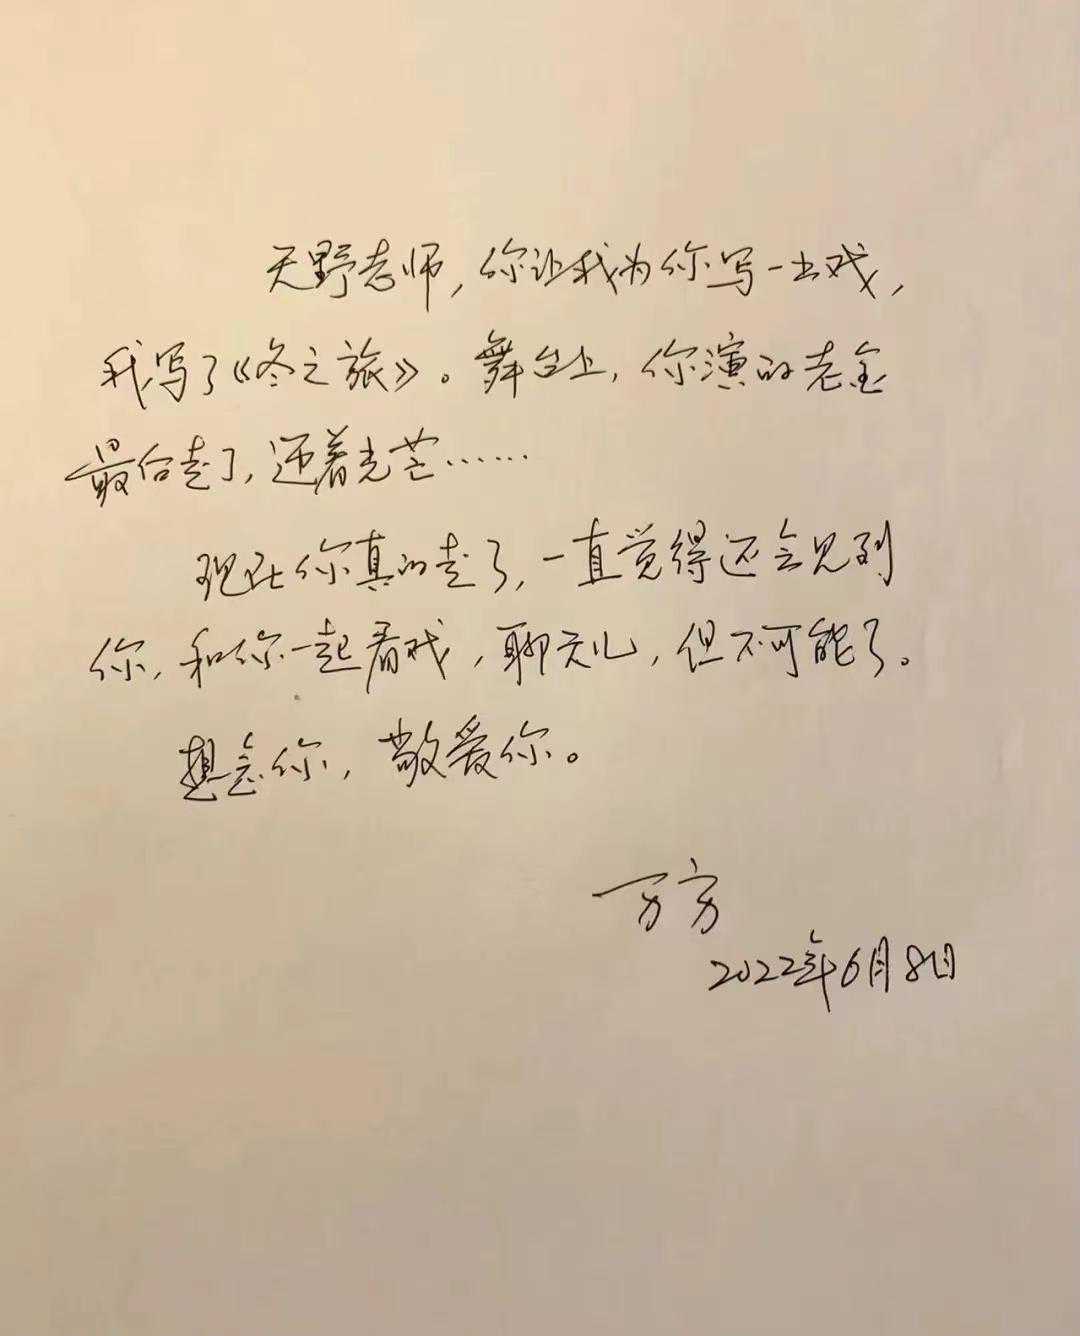 天野老师，你让我为你写一出戏，
我写了《冬之旅》。舞台上，你演的老金
最后走了，还着光芒……
现在你真的走了，一直觉得还会见到
你，和你一起看戏，聊天儿，但不可能了。
想念你，敬爱你。
万方
2022年6月8日